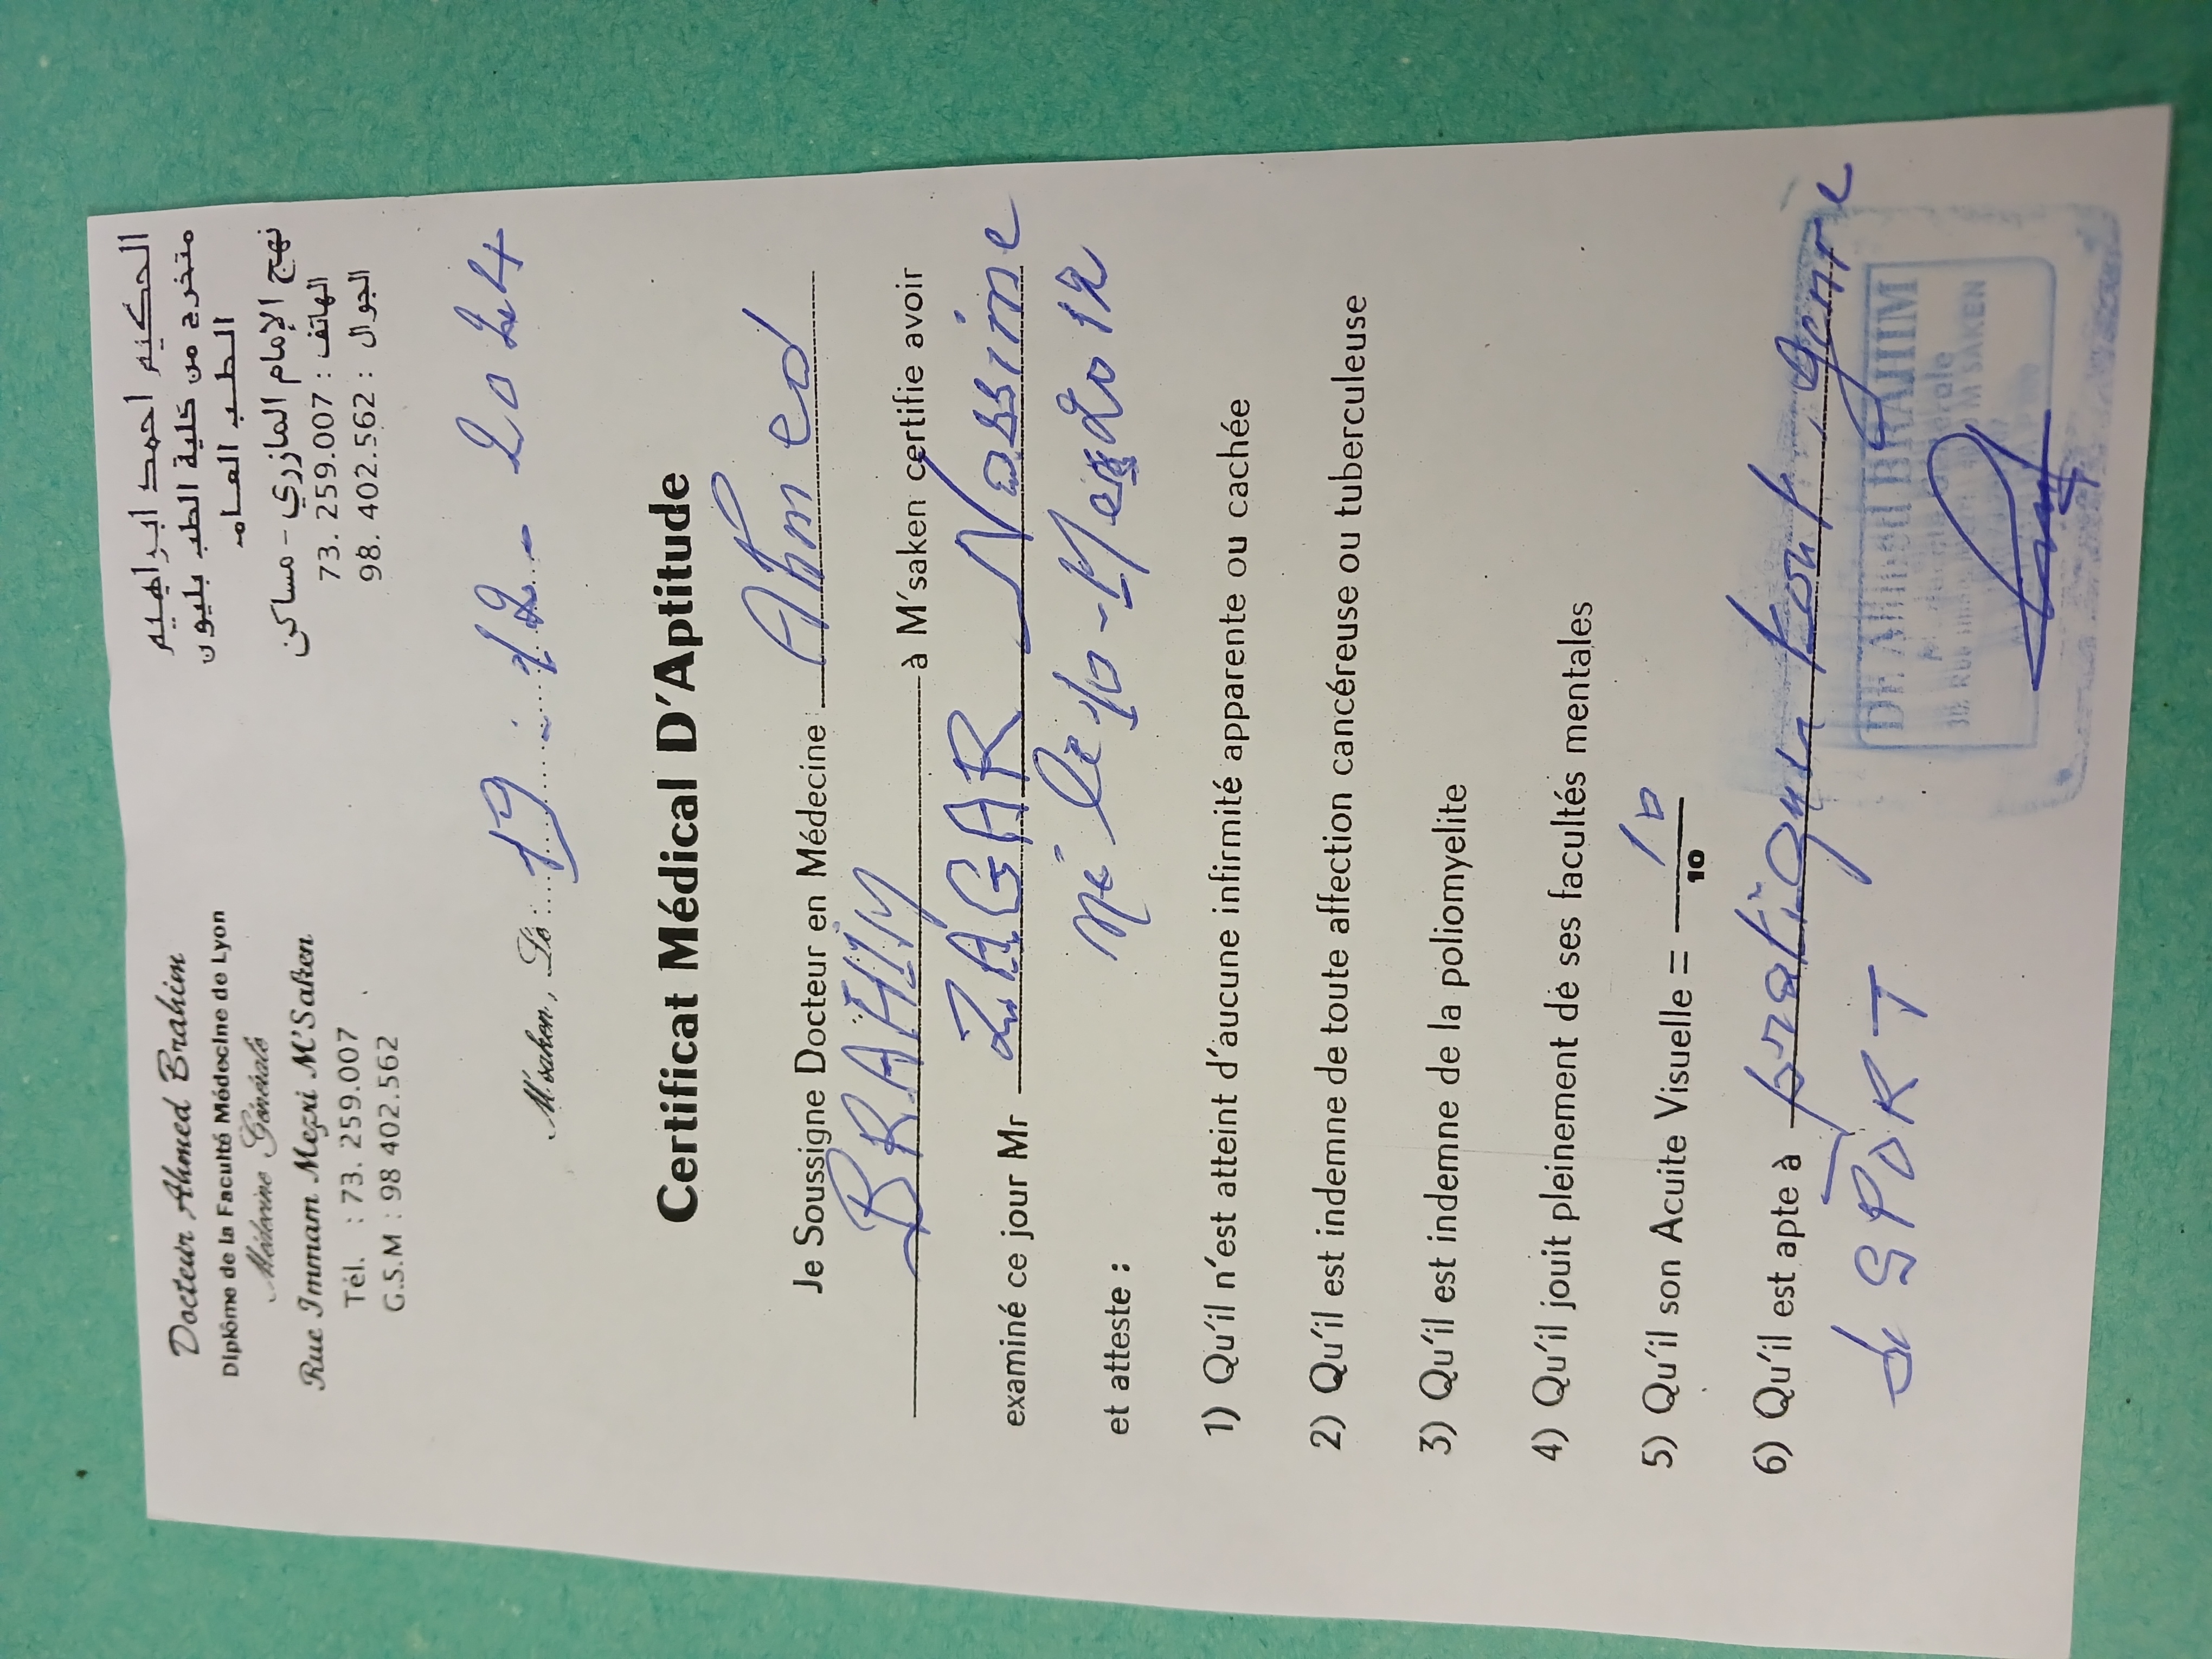 Docteur Ahmed Brahim
Diplôme de la Faculté Médecine de Lyon
Médecine Générale
Rue Immam Mezri M'Saken
Tél. : 73. 259.007
G.S.M : 98 402.562
الحكيم احمد ابراهيم
متخرج من كلية الطب بليون
الطب العام
نهج الإمام المازري - مساكن
الهاتف : 73. 259.007
الجوال : 98. 402.562
M'saken, Le : 19 - 12 - 2024
Certificat Médical D'Aptitude
Je Soussigne Docteur en Médecine Ahmed
BRAHIM à M'saken certifie avoir
examiné ce jour Mr ZAGAR Nassime
et atteste :
1) Qu'il n'est atteint d'aucune infirmité apparente ou cachée
2) Qu'il est indemne de toute affection cancéreuse ou tuberculeuse
3) Qu'il est indemne de la poliomyelite
4) Qu'il jouit pleinement de ses facultés mentales
5) Qu'il son Acuite Visuelle = 10/10
6) Qu'il est apte à pratiquer tout genre
de SPORT
DR. Ahmed BRAHIM